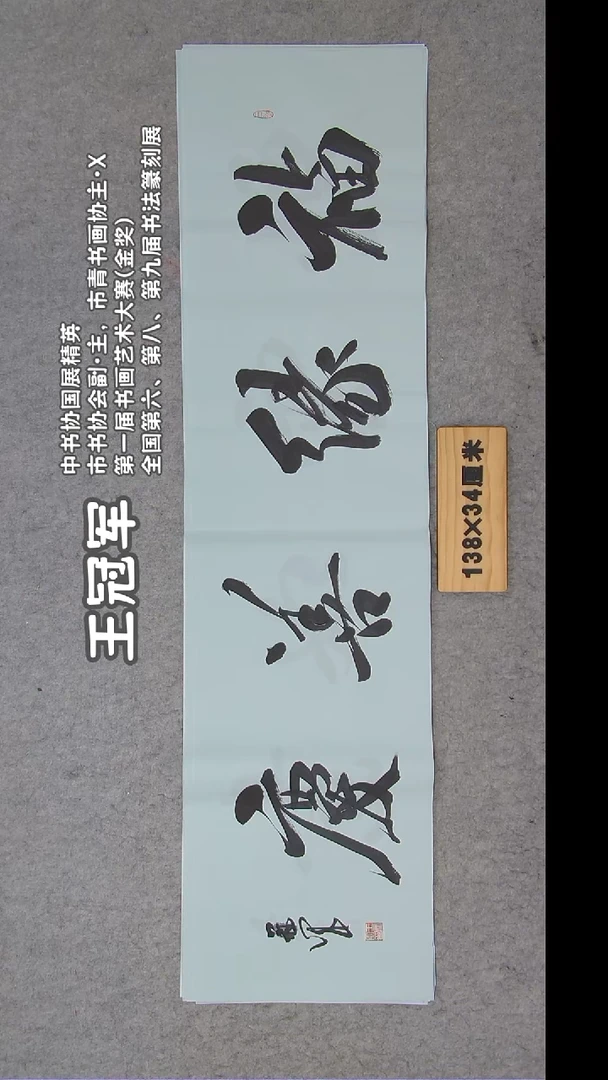 中书协国展精英
市书协会副·主，市青书画协主·X
第一届书画艺术大赛(金奖)
全国第六、第八、第九届书法篆刻展
王冠军
福缘善慶
冠军
138×34厘米